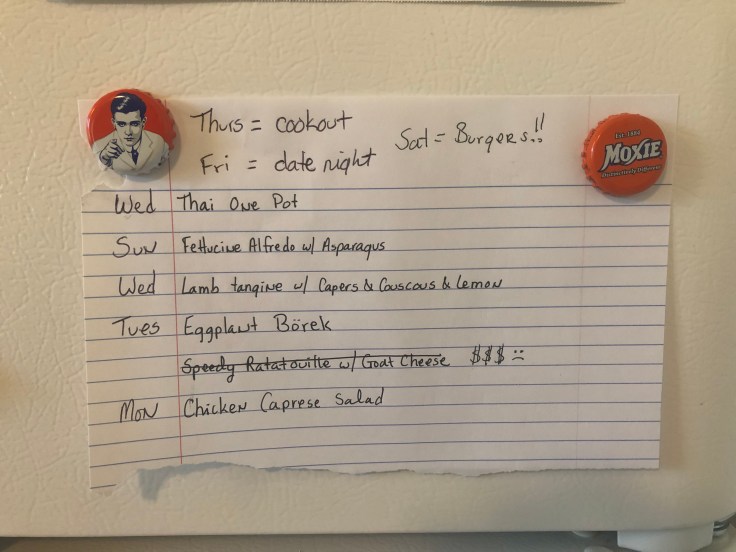 Thurs = cookout
Fri = date night
Sat = Burgers!!
Est. 1884
MOXIE
Distinctively Different
Wed Thai One Pot
Sun Fettucine Alfredo w/ Asparagus
Wed Lamb tangine w/ Capers & Couscous & Lemon
Tues Eggplant Börek
Speedy Ratatouille w/ Goat Cheese $$$ :(
Mon Chicken Caprese Salad